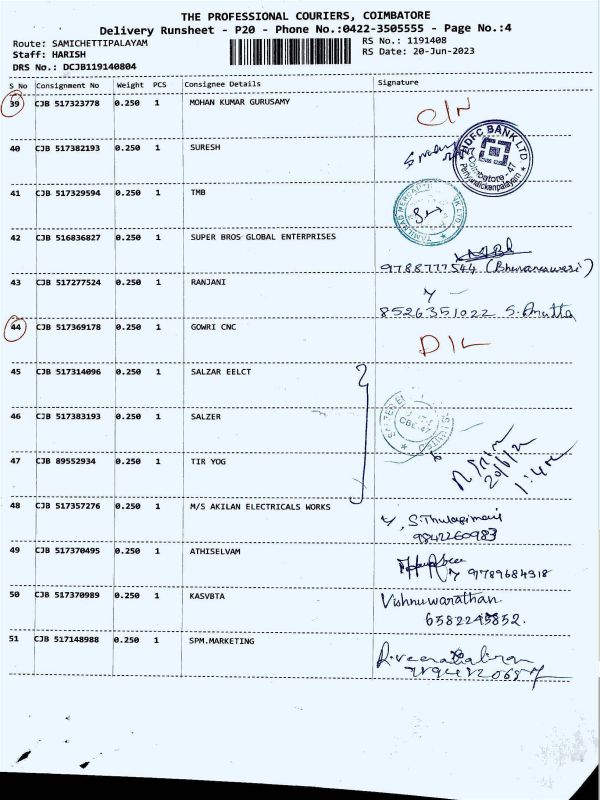 THE PROFESSIONAL COURIERS, COIMBATORE
Delivery Runsheet - P20 - Phone No.:0422-3505555 - Page No.:4
Route: SAMICHETTIPALAYAM RS No.: 1191408
Staff: HARISH RS Date: 20-Jun-2023
DRS No.: DCJB119140804
S No Consignment No Weight PCS Consignee Details Signature
39 CJB 517323778 0.250 1 MOHAN KUMAR GURUSAMY C/N
40 CJB 517382193 0.250 1 SURESH
HDFC BANK LTD
Coimbatore-47
Periyanaickenpalayam
41 CJB 517329594 0.250 1 TMB
42 CJB 516836827 0.250 1 SUPER BROS GLOBAL ENTERPRISES
9788777544 (Bhuvaneswari)
43 CJB 517277524 0.250 1 RANJANI
8526351022 S.
44 CJB 517369178 0.250 1 GOWRI CNC D/L
45 CJB 517314096 0.250 1 SALZAR EELCT
46 CJB 517383193 0.250 1 SALZER
CBE-47
47 CJB 89552934 1 TIR YOG
0.250
48 CJB 517357276 0.250 1 M/S AKILAN ELECTRICALS WORKS
S.Thulasimani
9842260983
49 CJB 517370495 0.250 1 ATHISELVAM
9789684318
50 CJB 517370989 0.250 1 KASVBTA Vishnuwarathan
51 CJB 517148988 0.250 1 SPM.MARKETING